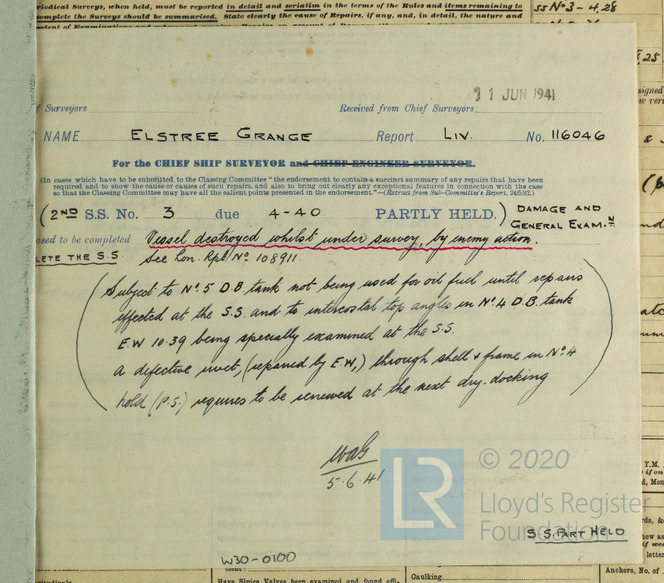 riodical Surveys, when held, must be reported in detail and seriatim in the terms of the Rules and items remaining to
omplete the Surveys should be summarised. State clearly the cause of Repairs, if any, and, in detail, the nature and
SS No 3 - 4.28
11 JUN 1941
f Surveyors
Received from Chief Surveyors
NAME ELSTREE GRANGE Report LIV. No. 116046
For the CHIEF SHIP SURVEYOR and CHIEF ENGINEER SURVEYOR.
(In cases which have to be submitted to the Classing Committee "the endorsement to contain a succinct summary of any repairs that have been
required and to show the cause or causes of such repairs, and also to bring out clearly any exceptional features in connection with the case
so that the Classing Committee may have all the salient points presented in the endorsement."—(Extract from Sub-Committee's Report, 24/5/92.)
(2ND S.S. No. 3 due 4-40 PARTLY HELD.) DAMAGE AND
GENERAL EXAM.N
osed to be completed Vessel destroyed whilst under survey, by enemy action.
LETE THE S.S. See Lon. Rpt No 108911.
(Subject to No. 5 D.B. tank not being used for oil fuel until repairs
effected at the S.S. and to intercostal top angles in No. 4 D.B. tank
E.W 10.39 being specially examined at the S.S.
A defective rivet, (repaired by E.W,) through shell & frame in No. 4
hold (P.S.) requires to be renewed at the next dry-docking)
5.6.41
LR © 2020
Lloyd's Register
Foundation
S S PART HELD
W30-0100
Have Sluice Valves been examined and found effi
Caulking
Anchors, No. of